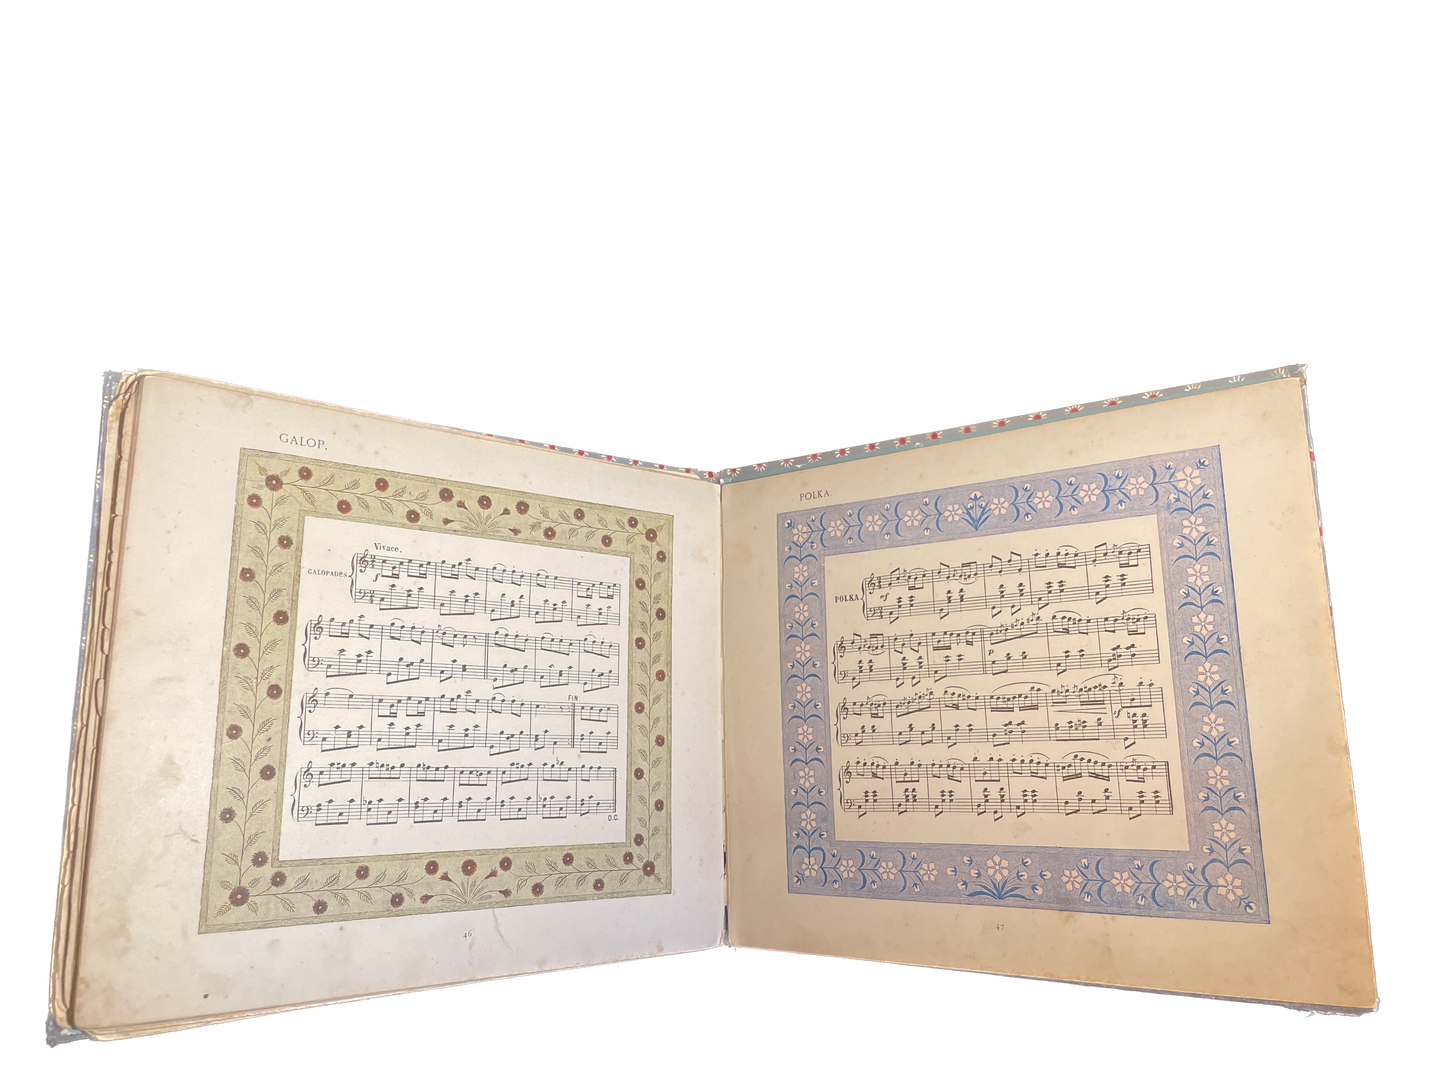 GALOP.
Vivace.
GALOPADES.
f
FIN
D.C.
46
POLKA.
POLKA.
mf
p
sf
47